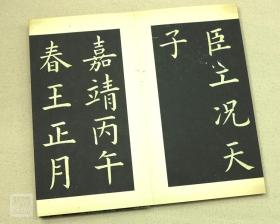 臣主况天
子
嘉靖丙午
春王正月